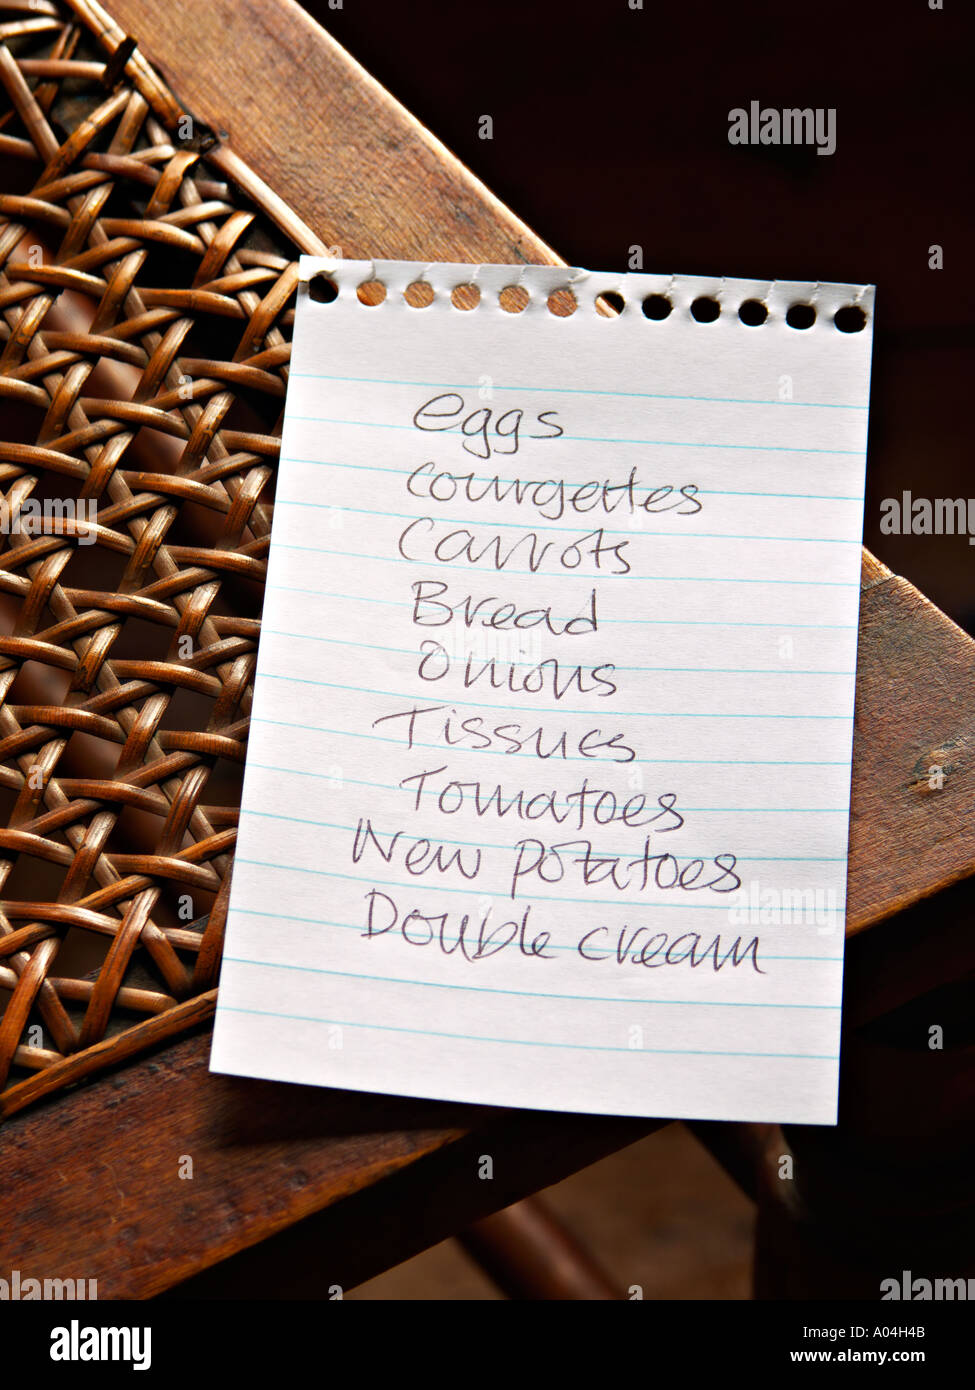 eggs
courgettes
Carrots
Bread
Onions
Tissues
Tomatoes
New potatoes
Double cream
alamy
a
alamy
a
alamy
alamy stock photo
A04H4B
www.alamy.com